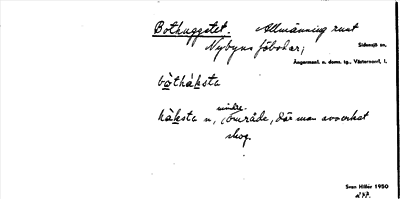 Bothuggstet. Allmänning runt
Nybyns fäbodar;
Sidensjö sn.
Ångermanl. n. doms. tg., Västernorrl. l.
bo̲thák̲sta
hák̲sta n, mindre område, där man avverkat
skog.
Sven Hillér 1950